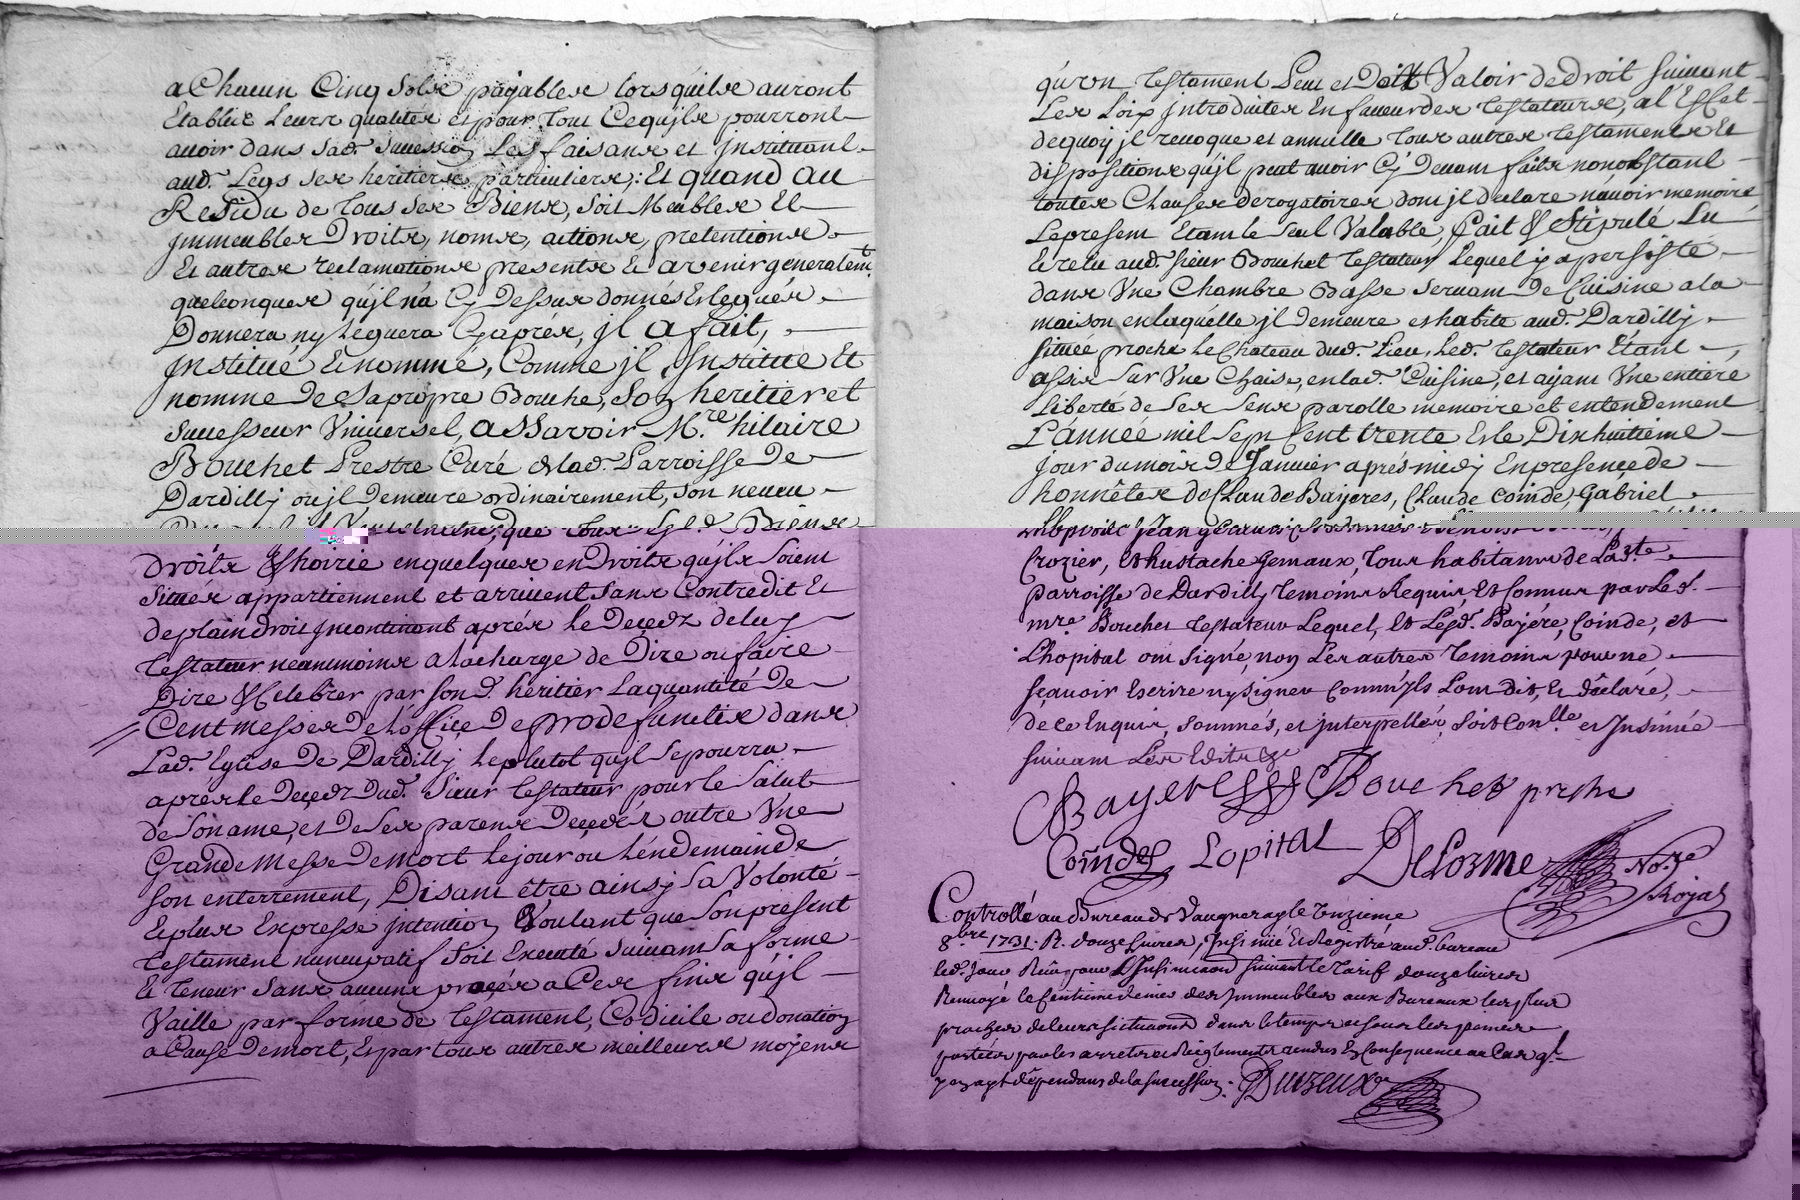 a Chacun Cinq Sols payables lors qu'ils auront
Etablis Leurs qualités et pour Tout Ce qu'ils pourront
avoir dans Sad. Succession Les faisans et Instituant
aud. Legs Ses heritiers particuliers; Et quand au
Residu de Tous Ses Biens, Soit Meubles Et
Immeubles Droits, noms, actions, pretentions
Et autres reclamations presents Et avenir generalemt.
quelconques qu'il n'a Cy Dessus donnés Et legués
Donnera ny Leguera Cy aprés, il a fait,
Institué Et nommé, Comme il Institue Et
nomme De Sa propre Bouche, Son heritier et
Successeur Universel, assavoir M.re hilaire
Bouchet Prestre Curé de lad. Parroisse de
Dardilly où il Demeure ordinairement, Son neveu
que tous Biens
Droits & hoirie en quelques endroits qu'ils Soient
Situés appartiennent et arrivent Sans Contredit Et
de plain droit Incontinant aprés le Deçedz de luy
Testateur neantmoins a la charge de Dire ou faire
Dire & Celebrer par Sond. heritier La quantité de
Cent messes De l'office De pro defunctis dans
Lad. Eglise De Dardilly le plutot qu'il Se pourra
aprés le Deçedz Dud. Sieur Testateur pour le Salut
de Son ame, et De Ses parens Deçedés outre Une
Grande Messe De mort le jour ou lendemain de
Son enterrement, Disant être ainsy Sa Volonté
Et plus Expresse Intention Voulant que Son present
Testament nuncupatif Soit Executé Suivant Sa forme
Et Teneur Sans aucuns procés a Ces fins qu'il
Vaille par forme de Testament, Codicile ou donation
a Cause De mort, Et par tous autres meilleurs moyens
qu'un Testament Peut et Doit Valoir de Droit Suivant
Les Loix Introduites En faveur des Testateurs, a l'Effet
de quoy il revoque et annulle Tous autres Testaments Et
dispositions qu'il peut avoir Cy Devant faits nonobstant
toutes Clauses Derogatoires dont il declare n'avoir memoire
Le present Etant le Seul Valable, fait & Stipulé Lu
Et relu aud. Sieur Bouchet Testateur Lequel y a persisté
dans Une Chambre Basse Servant De Cuisine a la
maison en laquelle il Demeure et habite aud. Dardilly
Située proche le Chateau dud. Lieu, Led. Testateur Etant
assis Sur Une Chaise, en lad. Cuisine, et ayant Une entiere
Liberté de Ses Sens parolle memoire et entendement
L'année mil Sept Cent trente Et le Dixhuitième
Jour du mois De Janvier aprés midy En presence de
honnêtes De Claude Bajeres, Claude Coinde, Gabriel
Lhopital Jean
Crozier, Et hustache Gemaux, Tous habitans de Lad. te
Parroisse de Dardilly Temoins Requis Et Connus par Led. S.
mre Bouchet Testateur Lequel, Et Lesd. Bajére, Coinde, et
Lhopital ont Signé, non Les autres Temoins pour ne
Sçavoir Escrire ny Signer Comm'ils L'ont dit, Et déclaré,
de ce Enquis, Sommés, et Interpellés, Soit Conllé et Insinué
Suivant Les Edits &c
Bayere Bouchet prstre
Coinde Lopital Delorme No.re
Royal
Controllé au Bureau de Vaugneray le Onzieme
8.bre 1731. R. douze livres, Insinué Et Registré aud. bureau
led. Jour Reçu pour L'Insinuaon Suivant le Tarif douze livres
Renvoyé le Centieme denier des Immeubles aux Bureaux les plus
proches de leurs Situaons dans le temps et sous les peines
portées par les arrets et Reglements rendus En Consequence au Cas ql.
y en ayt dépendans de la Succession.